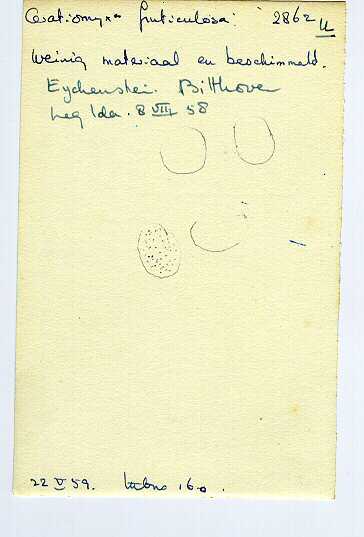 Ceratiomyxa fruticulosa. 2862 U
weinig materiaal en beschimmeld.
Eyckenstein. Bilthoven
Leg Ida. 8 VIII 58
22 V 59. 160.